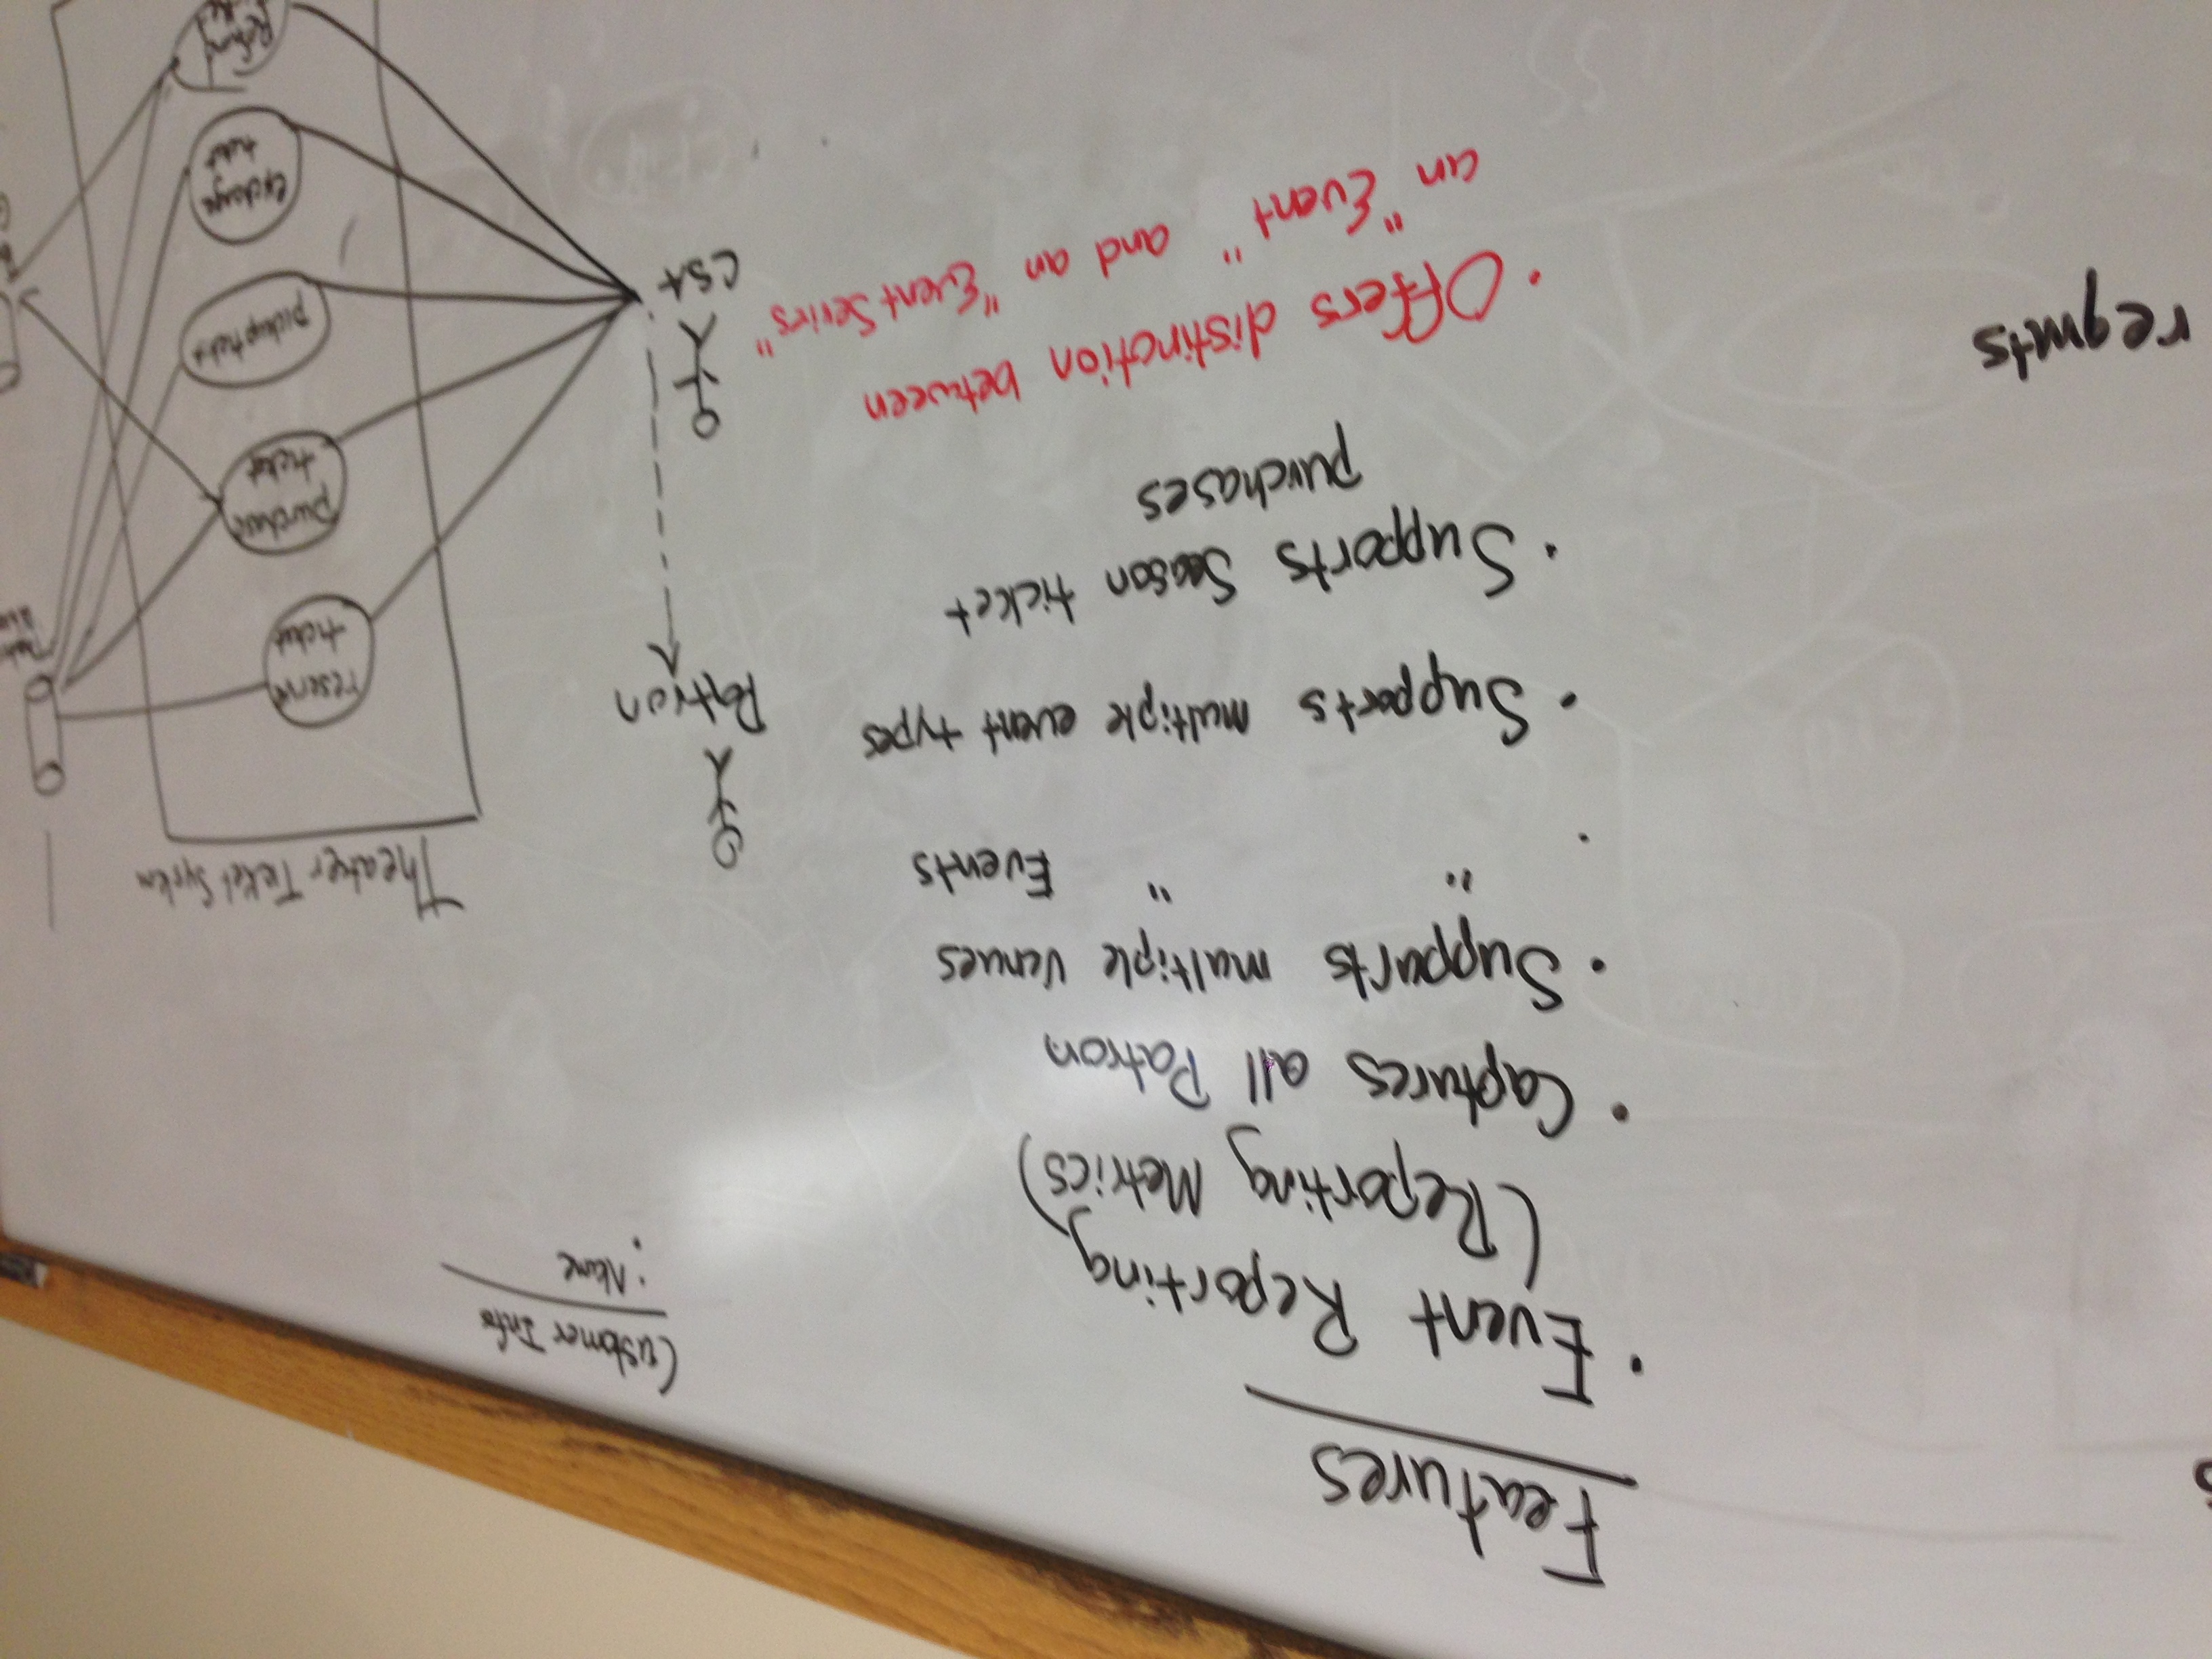 Features
• Event Reporting
(Reporting Metrics)
• Captures all Patron
• Supports multiple venues
• " " Events
• Supports multiple event types
• Supports Season ticket
purchases
• Offers distinction between
an "Event" and an "Event Series"
reqmts
Customer Info
• Name
•
Patron
CSA
Theater Ticket System
reserve
ticket
purchase
ticket
pickup ticket
exchange
ticket
Refund